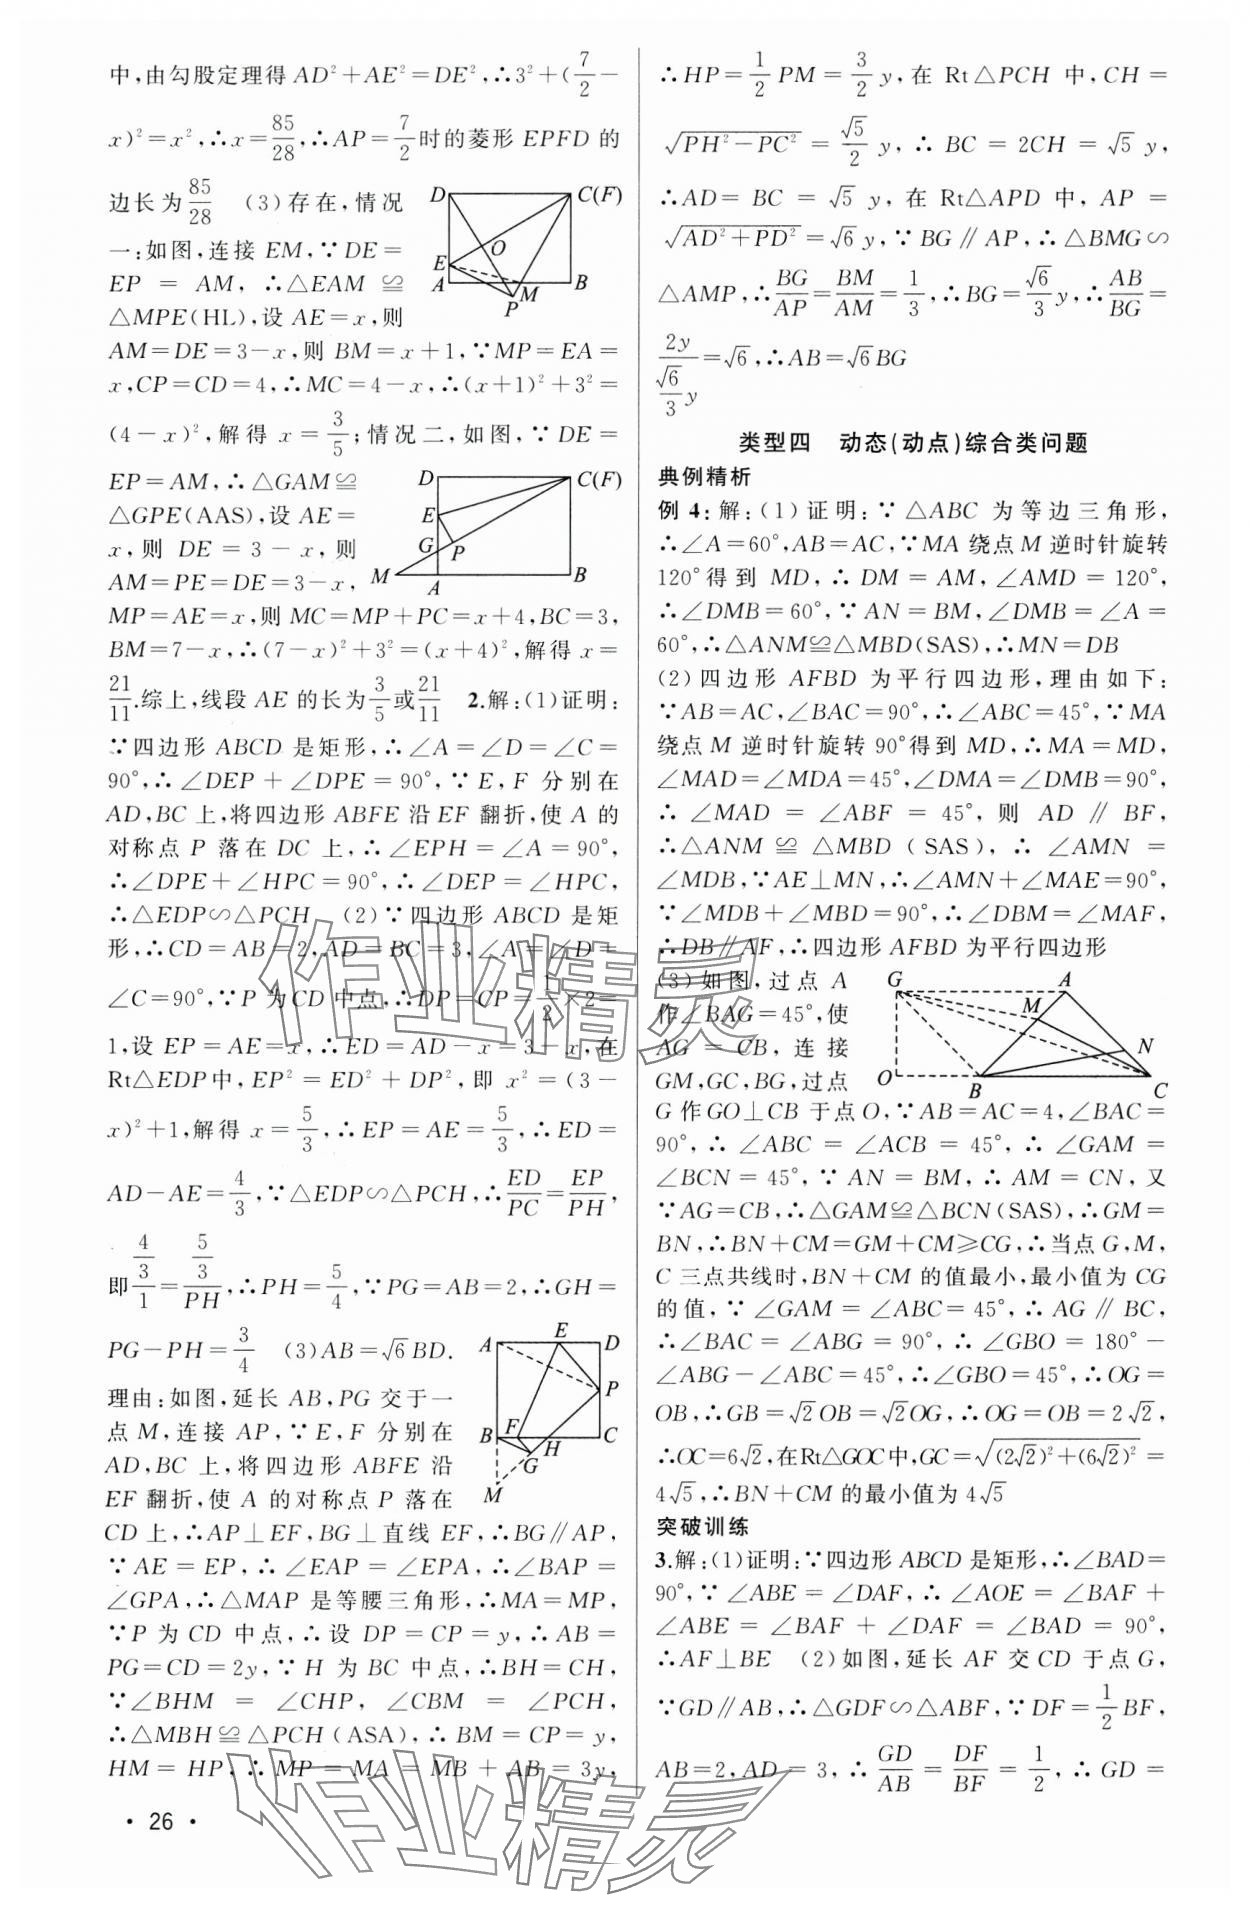 中,由勾股定理得 AD²+AE²=DE²,∴3²+(7/2-
x)²=x²,∴x=85/28,∴AP=7/2时的菱形 EPFD 的
边长为85/28 (3)存在,情况
一:如图,连接 EM,∵DE=
EP = AM,∴△EAM ≌
△MPE(HL),设 AE=x,则
AM=DE=3-x,则 BM=x+1,∵MP=EA=
x,CP=CD=4,∴MC=4-x,∴(x+1)²+3²=
(4-x)²,解得 x=3/5;情况二,如图,∵DE=
EP=AM,∴△GAM≌
△GPE(AAS),设 AE=
x,则 DE=3-x,则
AM=PE=DE=3-x,
MP=AE=x,则 MC=MP+PC=x+4,BC=3,
BM=7-x,∴(7-x)²+3²=(x+4)²,解得 x=
21/11.综上,线段 AE 的长为3/5或21/11 2.解:(1)证明:
∵四边形 ABCD 是矩形,∴∠A=∠D=∠C=
90°,∴∠DEP+∠DPE=90°,∵E,F 分别在
AD,BC 上,将四边形 ABFE 沿 EF 翻折,使 A 的
对称点 P 落在 DC 上,∴∠EPH=∠A=90°,
∴∠DPE+∠HPC=90°,∴∠DEP=∠HPC,
∴△EDP∽△PCH (2)∵四边形 ABCD 是矩
形,∴CD=AB=2,AD=BC=3,∠A=∠D=
∠C=90°,∵P 为 CD 中点,∴DP=CP=1/2×2=
1,设 EP=AE=x,∴ED=AD-x=3-x,在
Rt△EDP中,EP²=ED²+DP²,即 x²=(3-
x)²+1,解得 x=5/3,∴EP=AE=5/3,∴ED=
AD-AE=4/3,∵△EDP∽△PCH,∴ED/PC=EP/PH,
即(4/3)/1=(5/3)/PH,∴PH=5/4,∵PG=AB=2,∴GH=
PG-PH=3/4 (3)AB=√6BD.
理由:如图,延长 AB,PG 交于一
点 M,连接 AP,∵E,F 分别在
AD,BC 上,将四边形 ABFE 沿
EF 翻折,使 A 的对称点 P 落在
CD 上,∴AP⊥EF,BG⊥直线 EF,∴BG∥AP,
∵AE=EP,∴∠EAP=∠EPA,∴∠BAP=
∠GPA,∴△MAP 是等腰三角形,∴MA=MP,
∵P 为 CD 中点,∴设 DP=CP=y,∴AB=
PG=CD=2y,∵H 为 BC 中点,∴BH=CH,
∵∠BHM = ∠CHP, ∠CBM = ∠PCH,
∴△MBH≌△PCH(ASA),∴BM=CP=y,
HM=HP,∴MP=MA=MB+AB=3y,
D
C(F)
O
E
A
M
B
P
D
C(F)
E
G
P
M
A
B
A
E
D
P
B
F
H
C
G
M
• 26 •
∴HP=1/2PM=3/2y,在 Rt△PCH 中,CH=
√(PH²-PC²)=(√5/2)y,∴BC=2CH=√5y,
∴AD=BC=√5y,在 Rt△APD 中,AP=
√(AD²+PD²)=√6y,∵BG∥AP,∴△BMG∽
△AMP,∴BG/AP=BM/AM=1/3,∴BG=(√6/3)y,∴AB/BG=
2y/((√6/3)y)=√6,∴AB=√6BG
类型四 动态(动点)综合类问题
典例精析
例 4:解:(1)证明:∵△ABC 为等边三角形,
∴∠A=60°,AB=AC,∵MA 绕点 M 逆时针旋转
120°得到 MD,∴DM=AM,∠AMD=120°,
∴∠DMB=60°,∵AN=BM,∠DMB=∠A=
60°,∴△ANM≌△MBD(SAS),∴MN=DB
(2)四边形 AFBD 为平行四边形,理由如下:
∵AB=AC,∠BAC=90°,∴∠ABC=45°,∵MA
绕点 M 逆时针旋转 90°得到 MD,∴MA=MD,
∠MAD=∠MDA=45°,∠DMA=∠DMB=90°,
∴∠MAD=∠ABF=45°,则 AD∥BF,
∴△ANM≌△MBD(SAS),∴∠AMN=
∠MDB,∵AE⊥MN,∴∠AMN+∠MAE=90°,
∵∠MDB+∠MBD=90°,∴∠DBM=∠MAF,
∴DB∥AF,∴四边形 AFBD 为平行四边形
(3)如图,过点 A
作∠BAG=45°,使
AG=CB,连接
GM,GC,BG,过点
G 作GO⊥CB 于点 O,∵AB=AC=4,∠BAC=
90°,∴∠ABC=∠ACB=45°,∴∠GAM=
∠BCN=45°,∵AN=BM,∴AM=CN,又
∵AG=CB,∴△GAM≌△BCN(SAS),∴GM=
BN,∴BN+CM=GM+CM≥CG,∴当点 G,M,
C 三点共线时,BN+CM 的值最小,最小值为 CG
的值,∵∠GAM=∠ABC=45°,∴AG∥BC,
∴∠BAC=∠ABG=90°,∴∠GBO=180°-
∠ABG-∠ABC=45°,∴∠GBO=45°,∴OG=
OB,∴GB=√2OB=√2OG,∴OG=OB=2√2,
∴OC=6√2,在Rt△GOC中,GC=√((2√2)²+(6√2)²)=
4√5,∴BN+CM 的最小值为 4√5
突破训练
3.解:(1)证明:∵四边形 ABCD 是矩形,∴∠BAD=
90°,∵∠ABE=∠DAF,∴∠AOE=∠BAF+
∠ABE=∠BAF+∠DAF=∠BAD=90°,
∴AF⊥BE (2)如图,延长 AF 交 CD 于点 G,
∵GD∥AB,∴△GDF∽△ABF,∵DF=1/2BF,
AB=2,AD=3,∴GD/AB=DF/BF=1/2,∴GD=
G
A
M
N
O
B
C
作业精灵
作业精灵